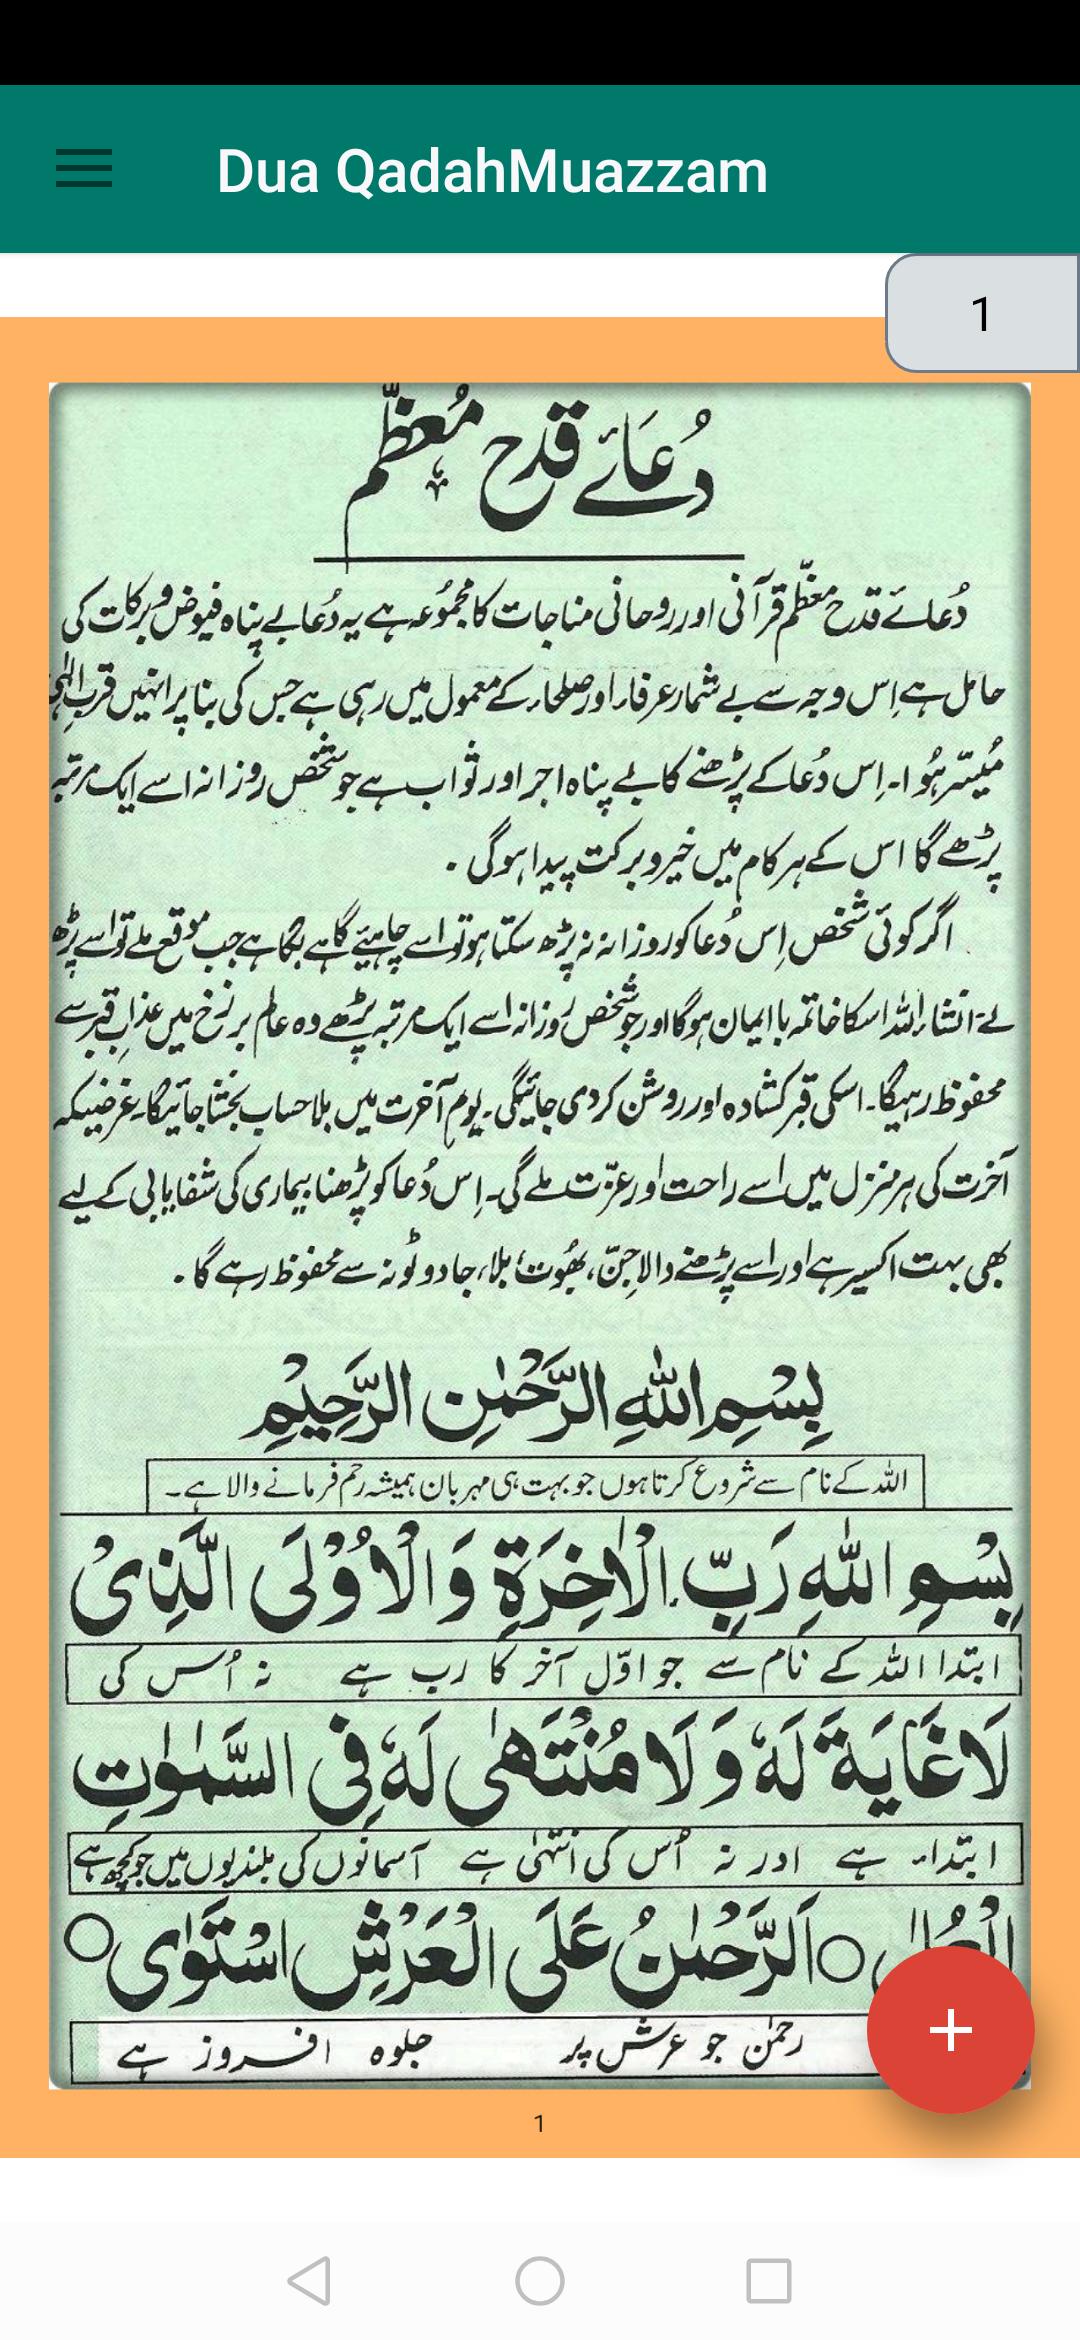 Dua QadahMuazzam
1
دُعائے قدح معظّم
دُعائے قدح معظّم قرآنی اور روحانی مناجات کا مجموُعہ ہے یہ دُعا بے پناہ فیوض و برکات کی
حامل ہے اِس وجہ سے بے شمار عرفاء اور صلحاء کے معمول میں رہی ہے جس کی بنا پر انہیں قربِ الٰہی
مُیسّر ہُوا۔ اِس دُعا کے پڑھنے کا بے پناہ اجر اور ثواب ہے جو شخص روزانہ اسے ایک مرتبہ
پڑھے گا اس کے ہر کام میں خیر و برکت پیدا ہو گی ۔
اگر کوئی شخص اِس دُعا کو روزانہ نہ پڑھ سکتا ہو تو اسے چاہیئے گاہے بگاہے جب موقع ملے تو اسے پڑھ
لے انشاء اللہ اسکا خاتمہ با ایمان ہو گا اور جو شخص روزانہ اسے ایک مرتبہ پڑھے وہ عالم برزخ میں عذابِ قبر سے
محفوظ رہیگا۔ اسکی قبر کشادہ اور روشن کر دی جائیگی۔ یومِ آخرت میں بلا حساب بخشا جائیگا۔ غرضیکہ
آخرت کی ہر منزل میں اسے راحت اور عزّت ملے گی۔ اِس دُعا کو پڑھنا بیماری کی شفایابی کے لیے
بھی بہت اکسیر ہے اور اسے پڑھنے والا جِنّ، بھُوت، بلا، جادو ٹونہ سے محفوظ رہے گا ۔
بِسْمِ اللّٰهِ الرَّحْمٰنِ الرَّحِيْمِ
اللہ کے نام سے شروع کرتا ہوں جو بہت ہی مہربان ہمیشہ رحم فرمانے والا ہے۔
بِسْمِ اللّٰهِ رَبِّ الْاٰخِرَةِ وَالْاُوْلَى الَّذِىْ
ابتدا اللہ کے نام سے جو اوّل آخر کا رب ہے نہ اُس کی
لَا غَايَةَ لَهٗ وَلَا مُنْتَهٰى لَهٗ فِى السَّمٰوٰتِ
ابتداء ہے اور نہ اُس کی انتہٰی ہے آسمانوں کی بلندیوں میں جو کچھ ہے
الْعُلٰى ○ اَلرَّحْمٰنُ عَلَى الْعَرْشِ اسْتَوٰى ○
رحمٰن جو عرش پر جلوہ افروز ہے
1